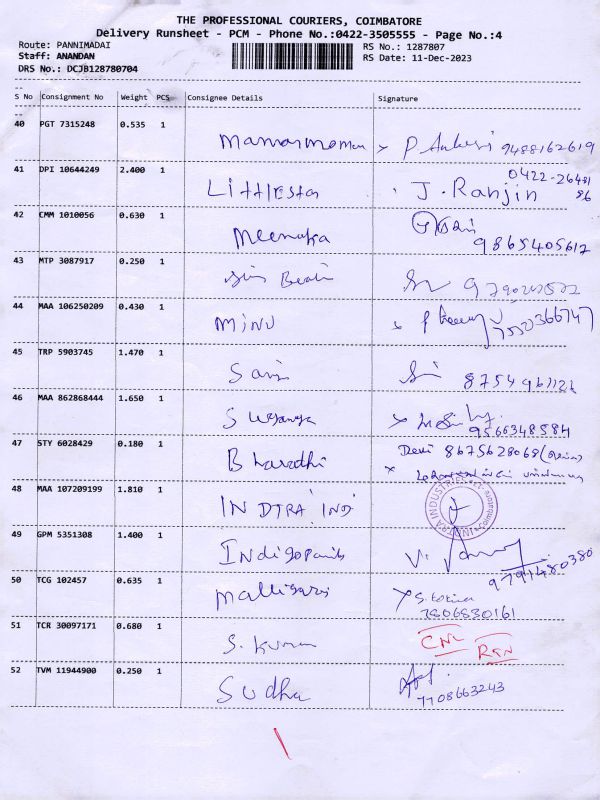 THE PROFESSIONAL COURIERS, COIMBATORE
Delivery Runsheet - PCM - Phone No.:0422-3505555 - Page No.:4
Route: PANNIMADAI RS No.: 1287807
Staff: ANANDAN RS Date: 11-Dec-2023
DRS No.: DCJB128780704
--
S No Consignment No Weight PCS Consignee Details Signature
--
40 PGT 7315248 0.535 1 9488162619
41 DPI 10644249 2.400 1 Littlestar J. Ranjin 0422-26481
86
42 CMM 1010056 0.630 1 Meenaka
9865405612
43 MTP 3087917 0.250 1
44 MAA 106250209 0.430 1 MINU
7550366747
45 TRP 5903745 1.470 1
46 MAA 862868444 1.650 1 Suganya
9566348584
47 STY 6028429 0.180 1 Bharadhi Devi 8675628068
48 MAA 107209199 1.810 1 INDTRA INDI
49 GPM 5351308 1.400 1
9791480380
50 TCG 102457 0.635 1
7806830161
51 TCR 30097171 0.680 1 S. Kumar CNL
RTN
52 TVM 11944900 0.250 1 Sudha
7708663243